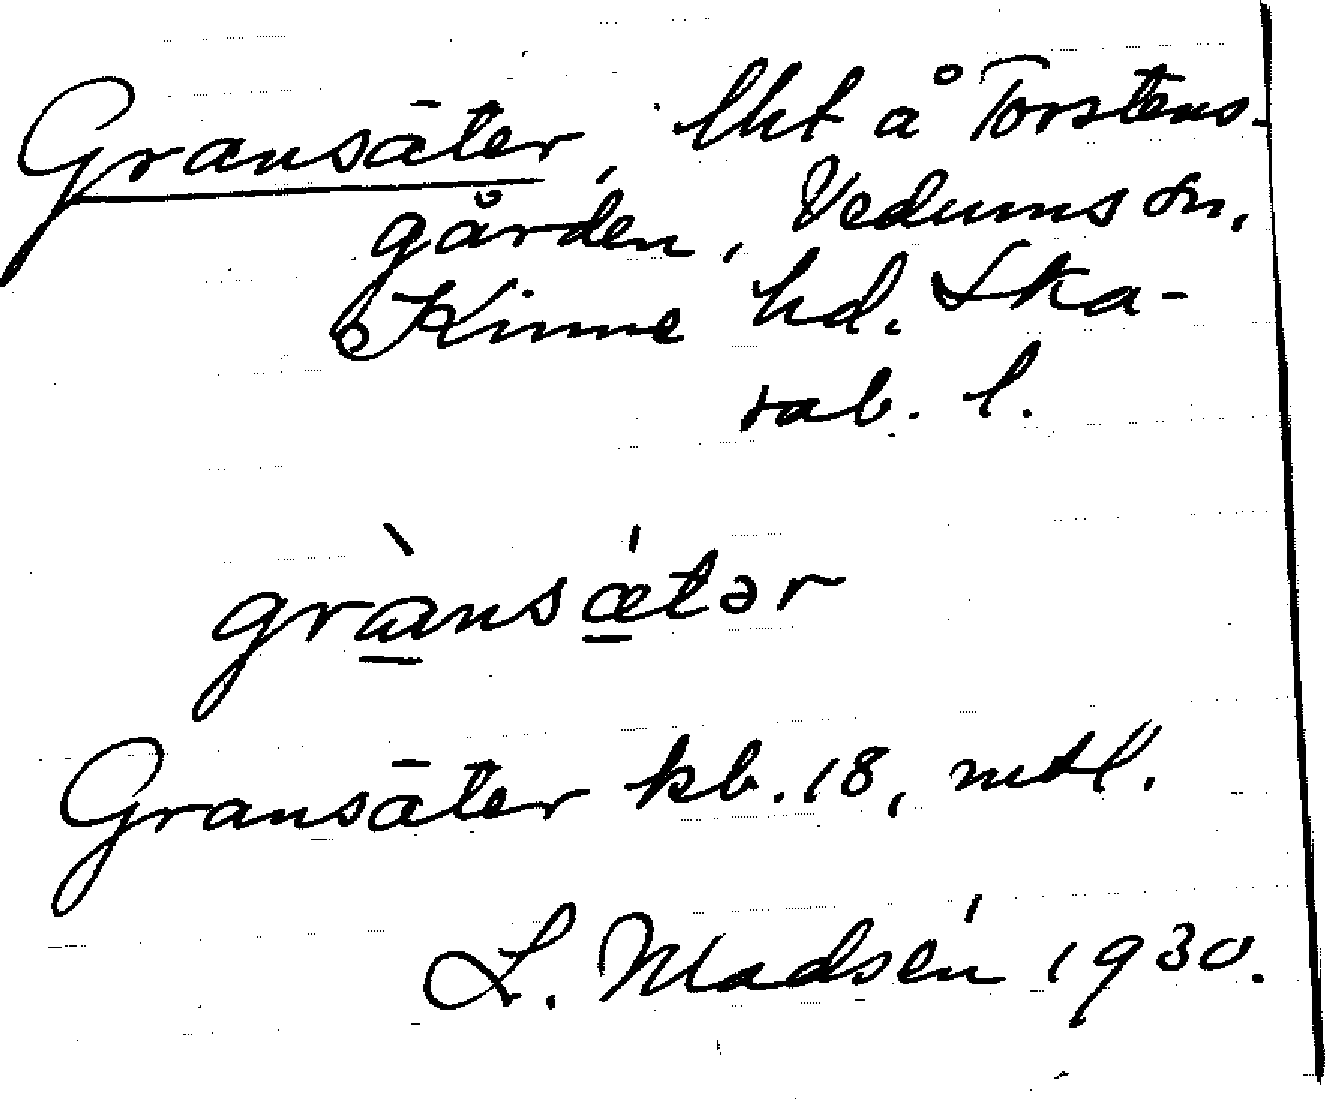 Gransäter, lht å Torstens-
gården, Vedums sn,
Kinne hd. Ska-
rab. l.
grànsǽtər
Gransäter kb. 18, mtl.
L. Madsén 1930.